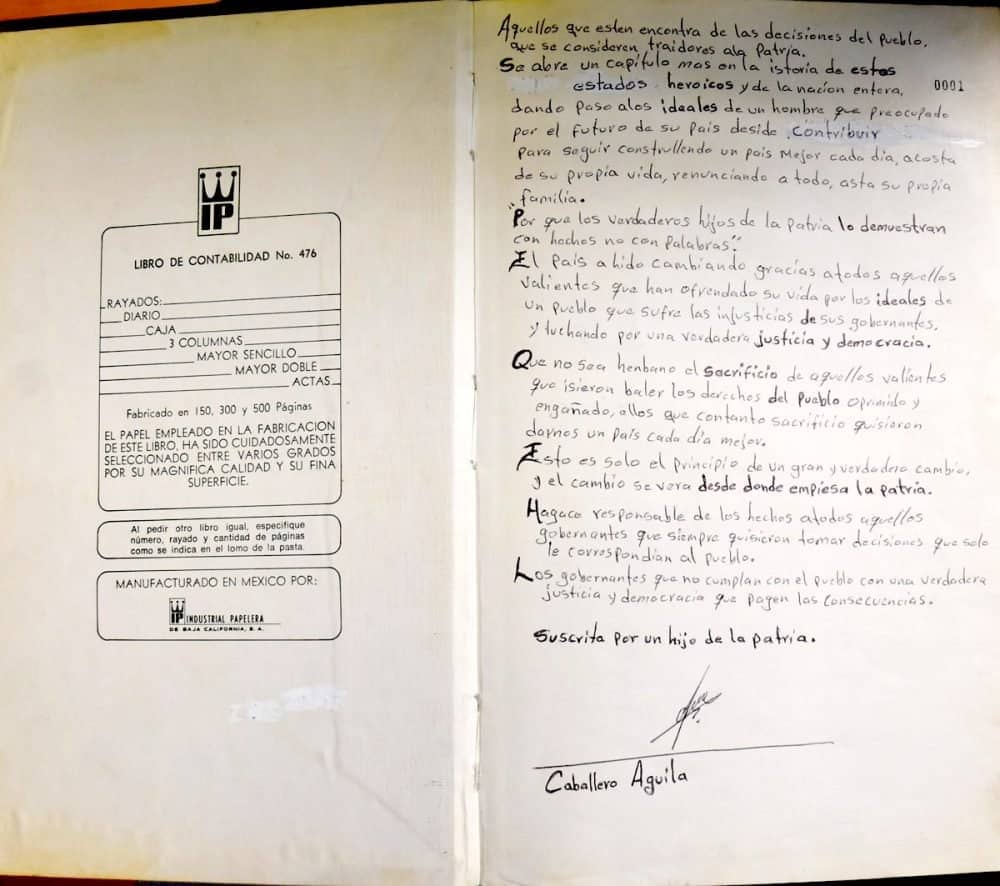 IP
LIBRO DE CONTABILIDAD No. 476
RAYADOS:
DIARIO
CAJA
3 COLUMNAS
MAYOR SENCILLO
MAYOR DOBLE
ACTAS
Fabricado en 150, 300 y 500 Páginas
EL PAPEL EMPLEADO EN LA FABRICACION
DE ESTE LIBRO, HA SIDO CUIDADOSAMENTE
SELECCIONADO ENTRE VARIOS GRADOS
POR SU MAGNIFICA CALIDAD Y SU FINA
SUPERFICIE.
Al pedir otro libro igual, especifique
número, rayado y cantidad de páginas
como se indica en el lomo de la pasta.
MANUFACTURADO EN MEXICO POR:
IP INDUSTRIAL PAPELERA
DE BAJA CALIFORNIA, S. A.
Aquellos que esten encontra de las decisiones del pueblo,
que se consideren traidores ala Patria.
Se abre un capítulo mas en la istoria de estos
estados heroicos y de la nacion entera,
0001
dando paso alos ideales de un hombre que preocupado
por el futuro de su país deside contribuir
para seguir construllendo un pais Mejor cada dia, acosta
de su propia vida, renunciando a todo, asta su propia
familia.
"Por que los verdaderos hijos de la patria lo demuestran
con hechos no con palabras."
El país a hido cambiando gracias atodos aquellos
valientes que han ofrendado su vida por los ideales de
un pueblo que sufre las injusticias de sus gobernantes,
y luchando por una verdadera justicia y democracia.
Que no sea henbano el sacrificio de aquellos valientes
que isieron baler los derechos del pueblo oprimido y
engañado, ellos que contanto sacrificio quisieron
darnos un país cada día mejor.
Esto es solo el principio de un gran y verdadero cambio,
y el cambio se vera desde donde empiesa la patria.
Hagace responsable de los hechos atodos aquellos
gobernantes que siempre quisieron tomar decisiones que solo
le correspondían al pueblo.
Los gobernantes que no cumplan con el pueblo con una verdadera
justicia y democracia que pagen las consecuencias.
Suscrita por un hijo de la patria.
Caballero Aguila